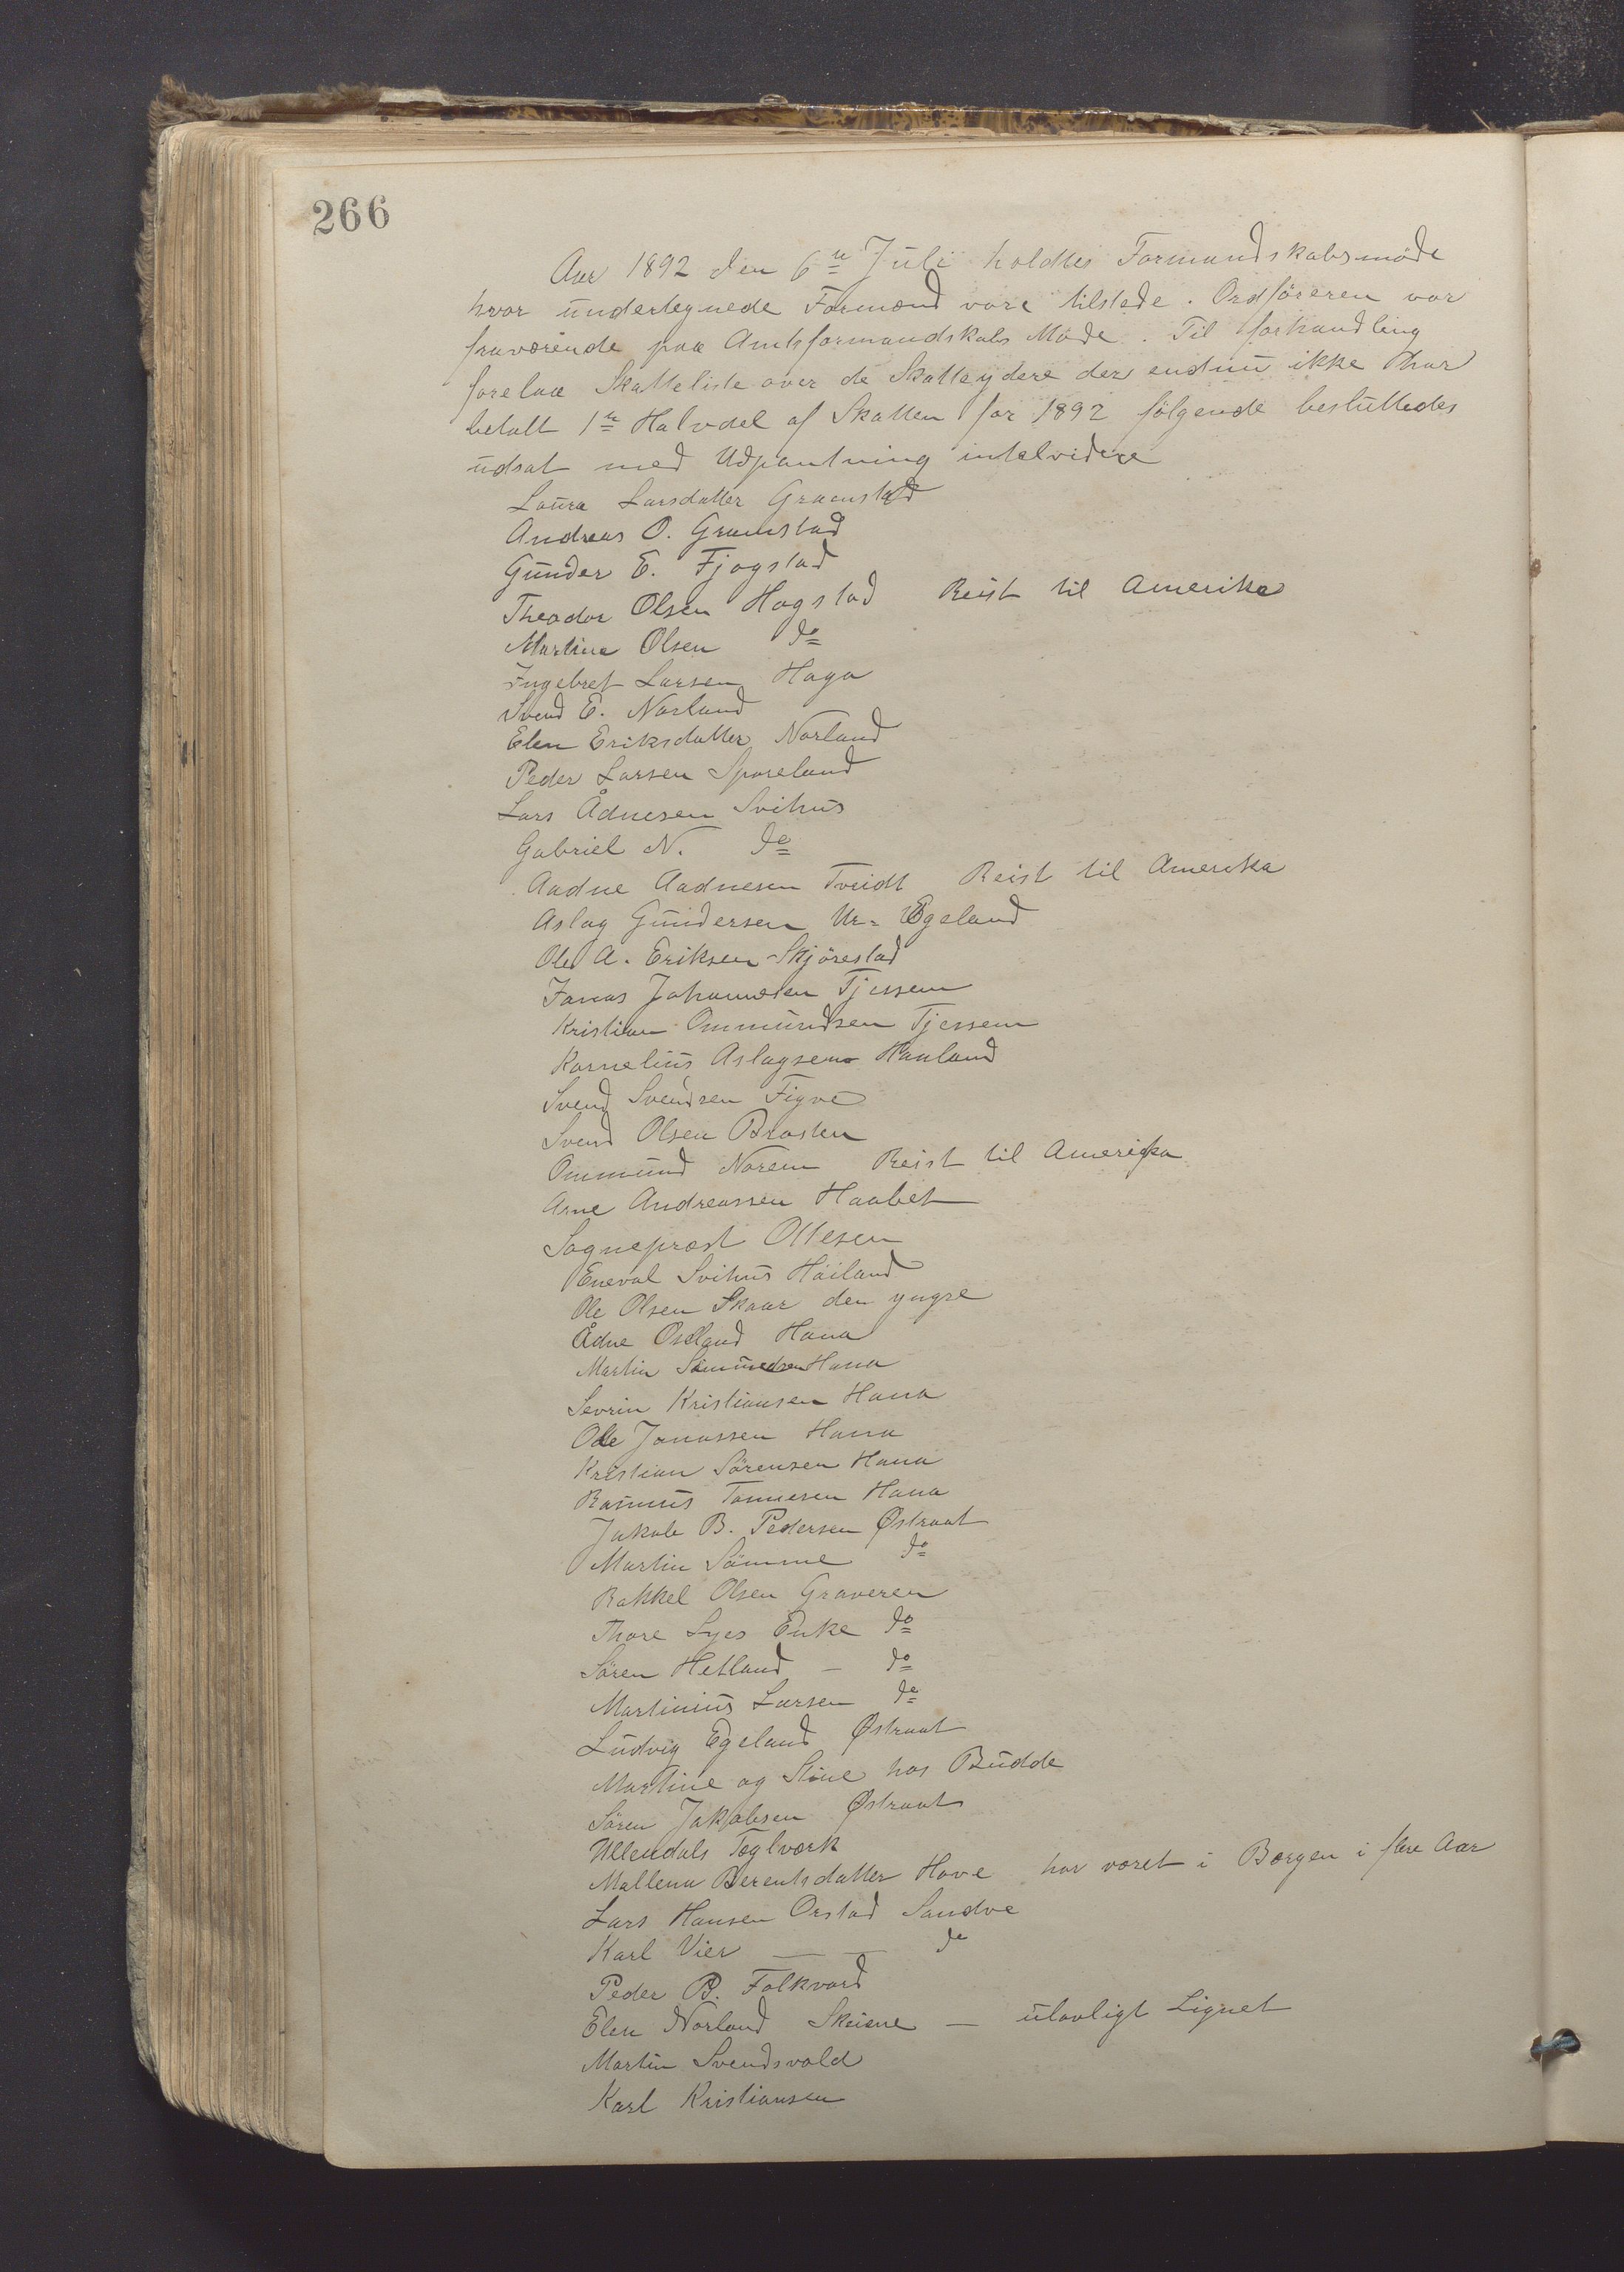 266
Aar 1892 den 6te Juli holdtes Formandskabsmöde
hvor undertegnede Formænd vare tilstede. Ordföreren var
fraværende paa Amtsformandskabs Möde. Til forhandling
forelaa Skatteliste over de Skatteydere der endnu ikke har
betalt 1ste Halvdel af Skatten for 1892 fölgende besluttedes
udsat med Udpantning intelvidere
Laura Larsdatter Gramstad
Andreas O. Gramstad
Gunder E. Fjogstad
Theodor Olsen Hogstad Reist til Amerika
Martine Olsen do
Ingebret Larsen Haga
Svend E. Norland
Elen Eriksdatter Norland
Peder Larsen Sporeland
Lars Ådnesen Svihus
Gabriel N. do
Aadne Aadnesen Tveidt Reist til Amerika
Aslag Gundersen Ur= Egeland
Ole A. Eriksen Skjörestad
Jonas Johannesen Tjessem
Kristian Ommundsen Tjessem
Kornelius Aslagsen Hanland
Svend Svendsen Figve
Svend Olsen Brasten
Ommund Norem Reist til Amerika
Arne Andreassen Haabet
Sogneprest Ottesen
Eneval Svihus Höiland
Ole Olsen Skaar den yngre
Ådne Osland Hana
Martin Sömmedsen Hana
Sevrin Kristiansen Hana
Ole Jonassen Hana
Kristian Sörensen Hana
Rasmus Tönnesen Hana
Jakob B. Pedersen Østraat
Martin Sömme do
Rakkel Olsen Graveren
Thore Lyes Enke do
Sören Hetland – do
Martinius Larsen do
Ludvig Egeland Østraat
Martine og Stine hos Budde
Sören Jakobsen Østraat
Ullendals Teglværk
Mallena Berentsdatter Hove har været i Bergen i flere Aar
Lars Hansen Orstad Sandve
Karl Vier — — do
Peder B. Folkvord
Elen Norland Skeiene — ulovligt Lignet
Martin Svendsvold
Karl Kristiansen